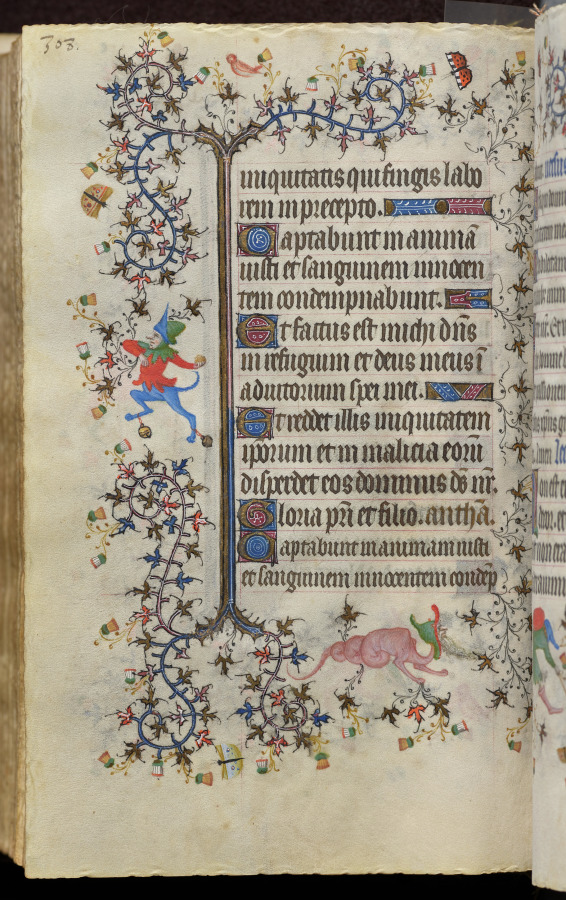 303.
iniquitatis qui fingis labo
rem in precepto.
Captabunt in animā
iusti et sanguinem innocen
tem condempnabunt.
Et factus est michi dn̄s
in refugium et deus meus ī
adiutorium spei mei.
Et reddet illis iniquitatem
ipsorum et in malicia eorū
disperdet eos dominus ds̄ nr̄.
Gloria pr̄i et filio. antħa.
Captabunt in animam iusti
et sanguinem innocentem condēp